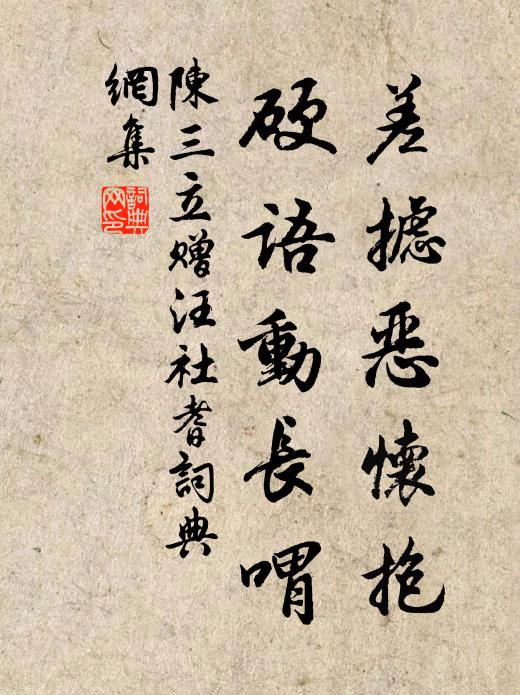 差攄惡懷抱
硬語動長喟
陳三立贈汪社耆詞典
網集
詞典
网印